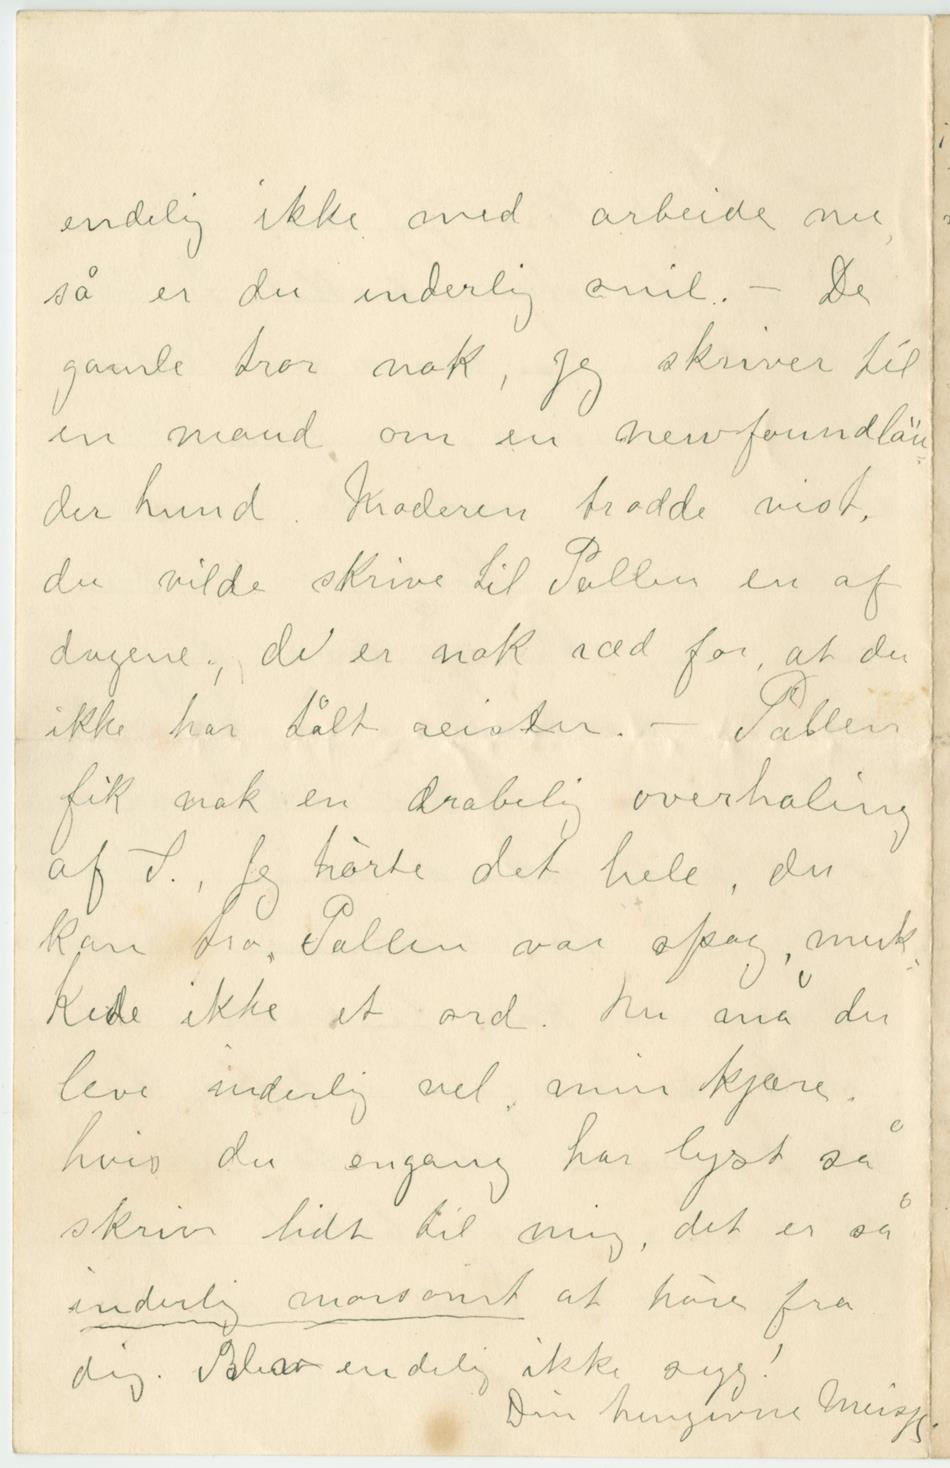 endelig ikke med arbeide nu,
så er du inderlig snil. — De
gamle tror nok, jeg skriver til
en mand om en newfoundlän-
der hund. Moderen trodde vist,
du vilde skrive til Pallen en af
dagene, de er nok ræd for, at du
ikke har tålt reisen. — Pallen
fik nok en drabelig overhaling
af S., jeg hörte det hele, du
kan tro, Pallen var spag, muk-
kede ikke et ord. Nu må du
leve inderlig vel, min kjære.
hvis du engang har lyst så
skriv lidt til mig, det er så
inderlig morsomt at höre fra
dig. Bliv endelig ikke syg!
Din hengivne